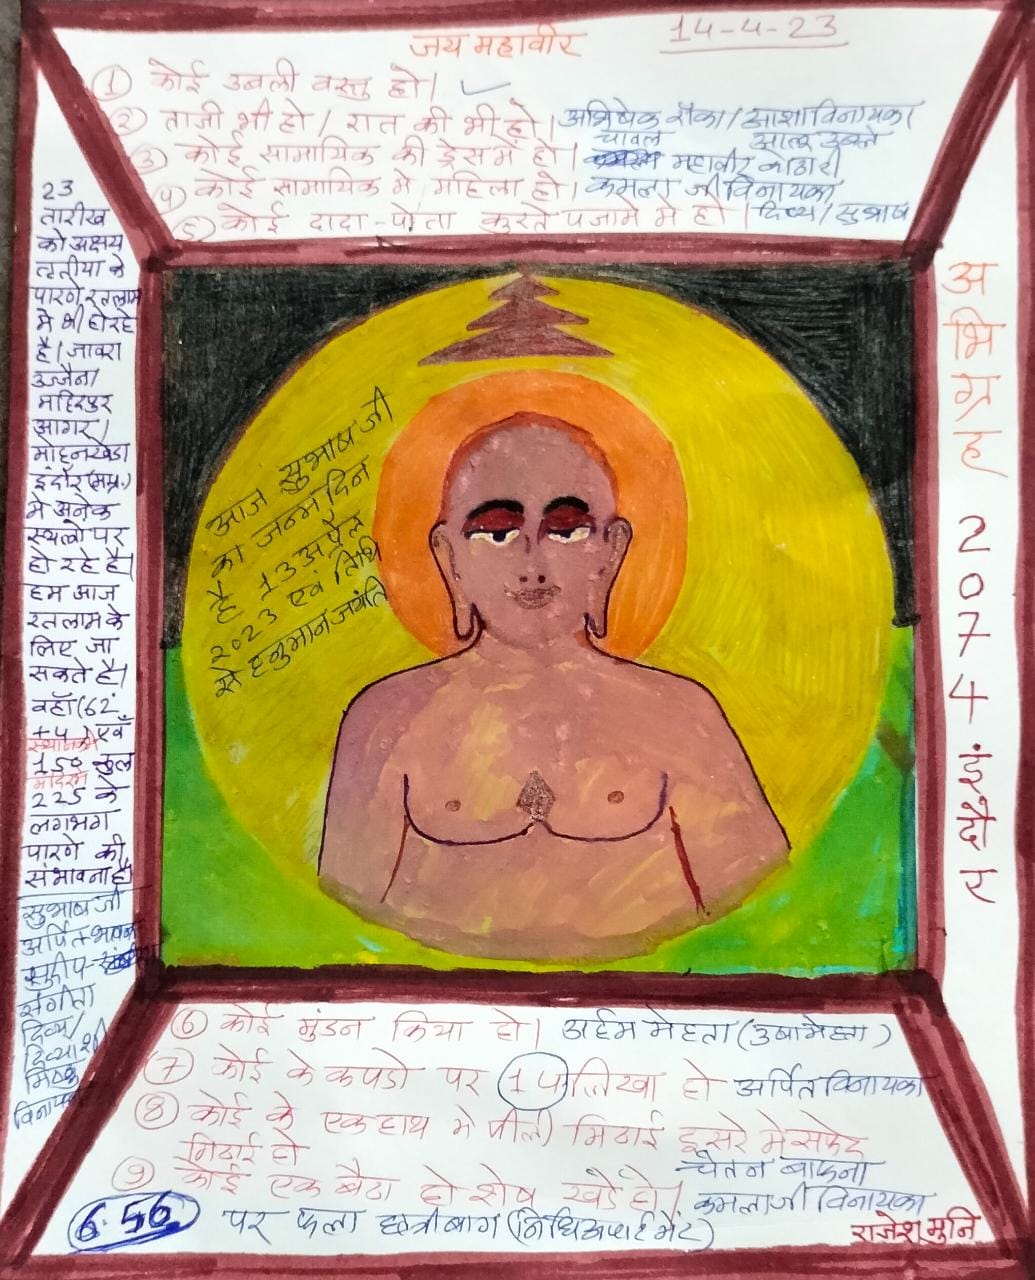 जय महावीर
14-4-23
① कोई उबली वस्तु हो।
② ताजी भी हो। रात की भी हो। अभिषेक रांका/ आशा विनायका
चावल आलू उबले
③ कोई सामायिक की ड्रेस में हो। महावीर कोठारी
④ कोई सामायिक मे महिला हो। कमला जी विनायका
⑤ कोई दादा-पोता कुरते पजामे मे हो। दिव्य/सुभाष
23
तारीख
को अक्षय
तृतीया के
पारणे रतलाम
मे भी हो रहे
है। जावरा
उज्जैन।
महिदपुर
आगर।
मोहनखेडा
इंदौर (म.प्र.)
मे अनेक
स्थलो पर
हो रहे है।
हम आज
रतलाम के
लिए जा
सकते है।
वहाँ (62
+4) एवँ
स्थानक मे
159 कुल
मंदिर मे
225 के
लगभग
पारणे की
संभावना है।
सुभाष जी
अर्पित
सुदीप
संगीता
दिव्य/
विनायका
आज सुभाष जी
का जन्म दिन
है 13 अप्रैल
2023 एवं तिथि
से हनुमान जयंति
अभिग्रह 2074 इंदौर
⑥ कोई मुंडन किया हो। अर्हम मेहता (उषा मेहता)
⑦ कोई के कपडो पर 14 लिखा हो अर्पित विनायका
⑧ कोई के एक हाथ मे पीली मिठाई दूसरे मे सफेद
मिठाई हो चेतन बाफना
⑨ कोई एक बैठा हो शेष खडे हो। कमलाजी विनायका
6.56 पर फला छत्रीबाग (निधि अपार्टमेंट)
राजेश मुनि